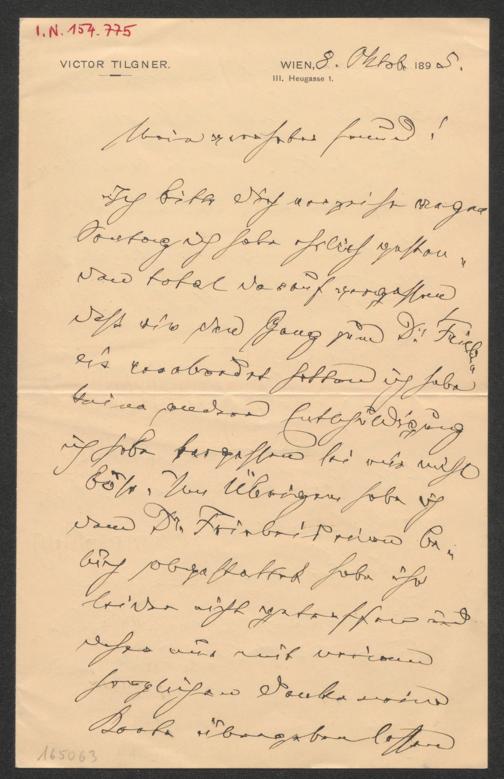 I.N. 154.775
VICTOR TILGNER.
WIEN, 8. Oktob. 1895.
III, Heugasse 1.
Mein verehrter Freund!
Ich bitte Dich verzeihe wegen
Sonntag ich habe ehrlich gestan-
den total darauf vergessen
daß wir den Gang zum Dr. Fried-
eis verabredet hatten ich habe
keine andere Entschuldigung
ich habe vergessen sei mir nicht
böse. Im Übrigen habe ich
dem Dr. Friedeis einen Be-
such abgestattet habe ihn
leider nicht getroffen und
ihm mit meinem
herzlichen Danke meine
Karte übergeben lassen
165063